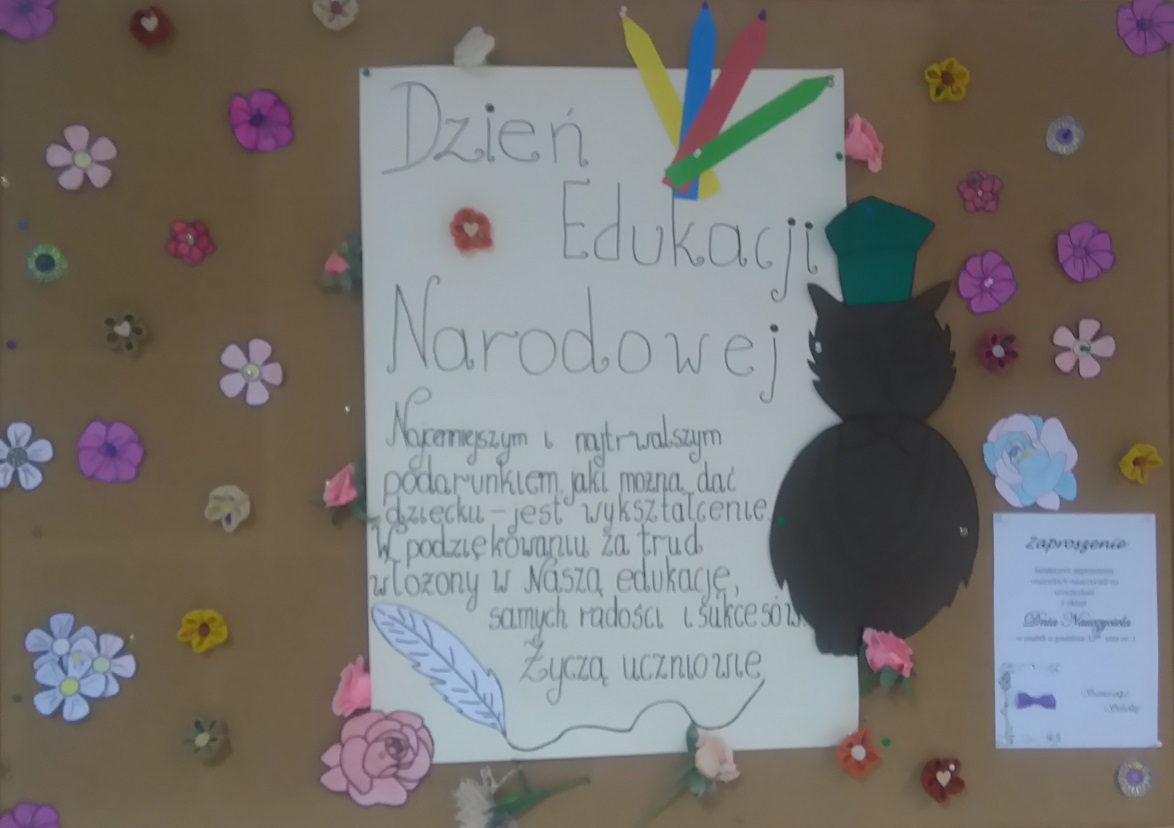 Dzień
Edukacji
Narodowej
Najcenniejszym i najtrwalszym
podarunkiem, jaki można dać
dziecku – jest wykształcenie.
W podziękowaniu za trud
włożony w Naszą edukację,
samych radości i sukcesów
Życzą uczniowie
Zaproszenie
Dnia Nauczyciela